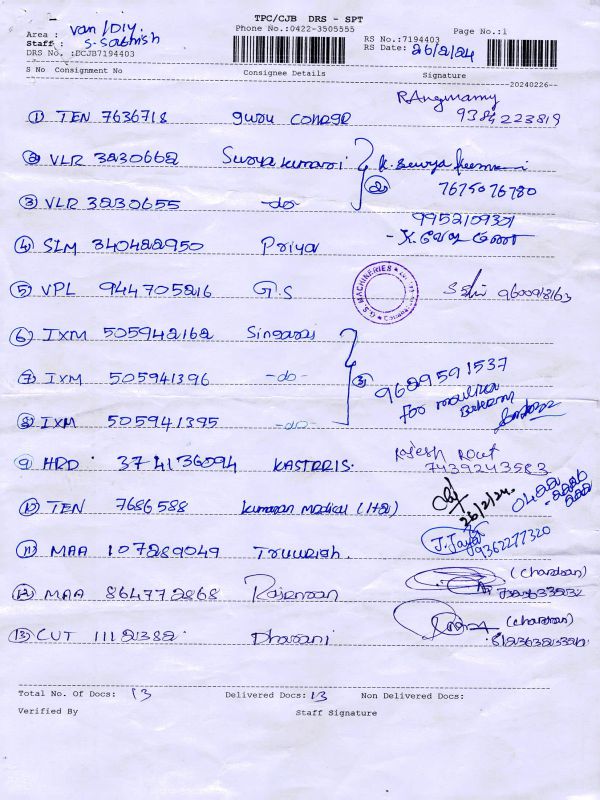 TPC/CJB DRS - SPT
Area : van / Diy. Phone No.:0422-3505555 Page No.:1
Staff : S. Sathish RS No.:7194403
DRS No. :DCJB7194403 RS Date: 26/2/24
S No Consignment No Consignee Details Signature
20240226
① TEN 7636718 guru College RAngmamy
9384223819
② VLR 3230662 Suryakumari
② 7675076780
③ VLR 3230655 -do-
9952109301
④ SLM 340422950 Priya
⑤ VPL 944705216 G.S G.S MACHINERIES 9600918163
⑥ IXM 505942162 Singaraj
⑦ IXM 505941396 -do- ③ 9629591537
for
⑧ IXM 505941395 -do-
⑨ HRD 374136094 KASTERIS. Rajesh Rout
7439243583
⑩ TEN 7686588 kumaran medical (1+2) 26/2/24. 0422-
⑪ MAA 107289049 J. Jaya
9362277320
⑫ MAA 864772868 Rajendran (chandran)
⑬ CUT 1112382 Dharani (chandran)
Total No. Of Docs: 13 Delivered Docs: 13 Non Delivered Docs:
Verified By Staff Signature